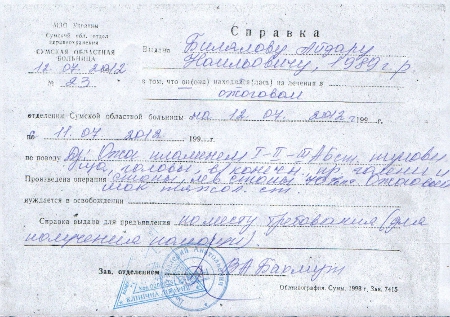 МЗО України
Сумской обл. отдел
здравоохранения
СУМСКАЯ ОБЛАСТНАЯ
БОЛЬНИЦА
12.07.2012
№ 23
Справка
Выдана Билялову Айдару
Наильовичу, 1989 г.р.
в том, что он(она) находился(лась) на лечении в
ожоговом
отделении Сумской областной больницы на 12.07.2012 199 г.
по 11.07.2012 199 г.
по поводу Ds: Ожог пламенем I-II-III АБ ст. туловища
лица, головы, голени и
Произведена операция стопы
шок ст.
нуждается в освобождении
Справка выдана для предъявления по месту требования (для
получения помощи)
Зав. отделением В.А. Бахмут
Облтипография. Сумы. 1998 г. Зак. 7415